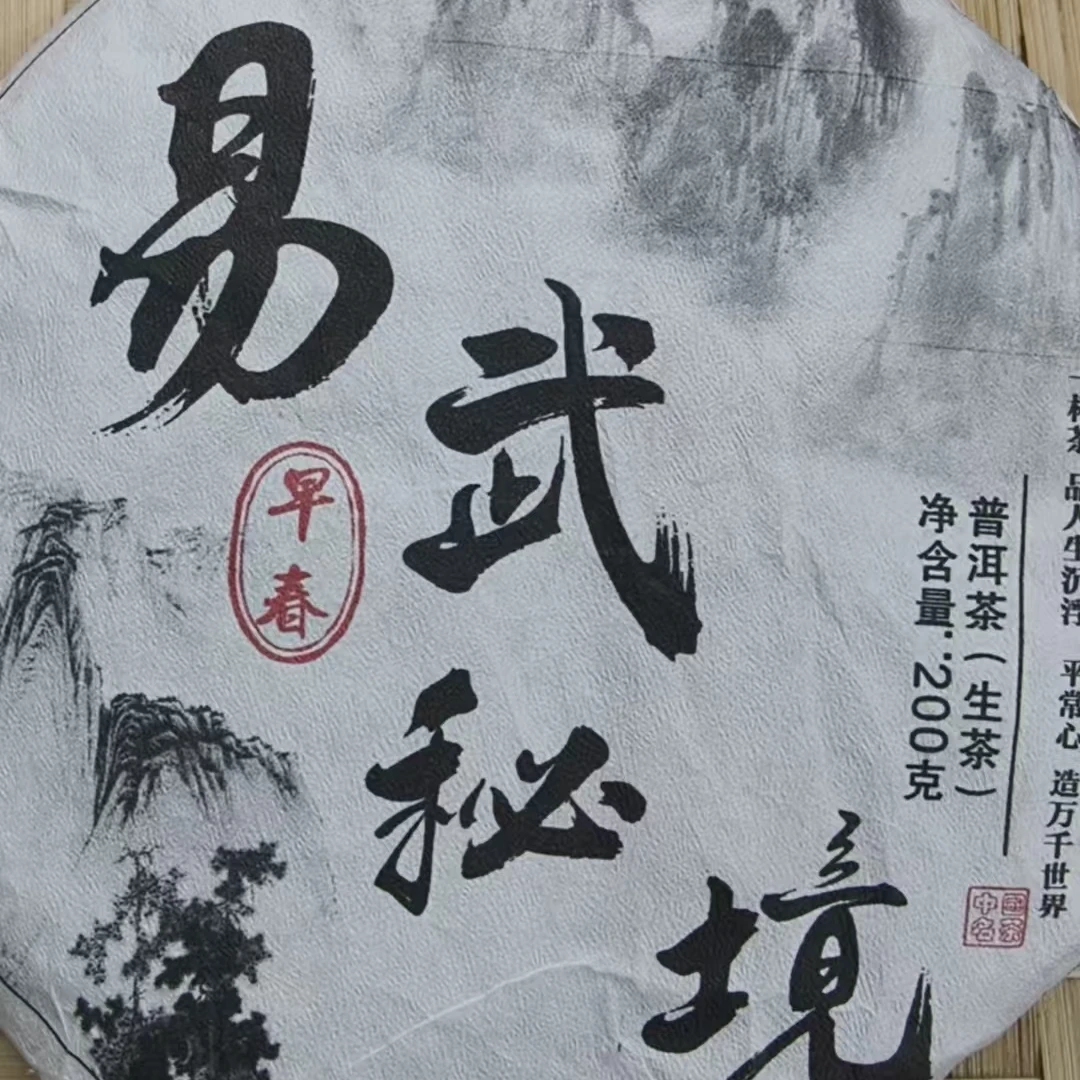 易武秘境
早春
普洱茶（生茶）
净含量：200克
品人生沉浮 平常心 造万千世界
中国名茶